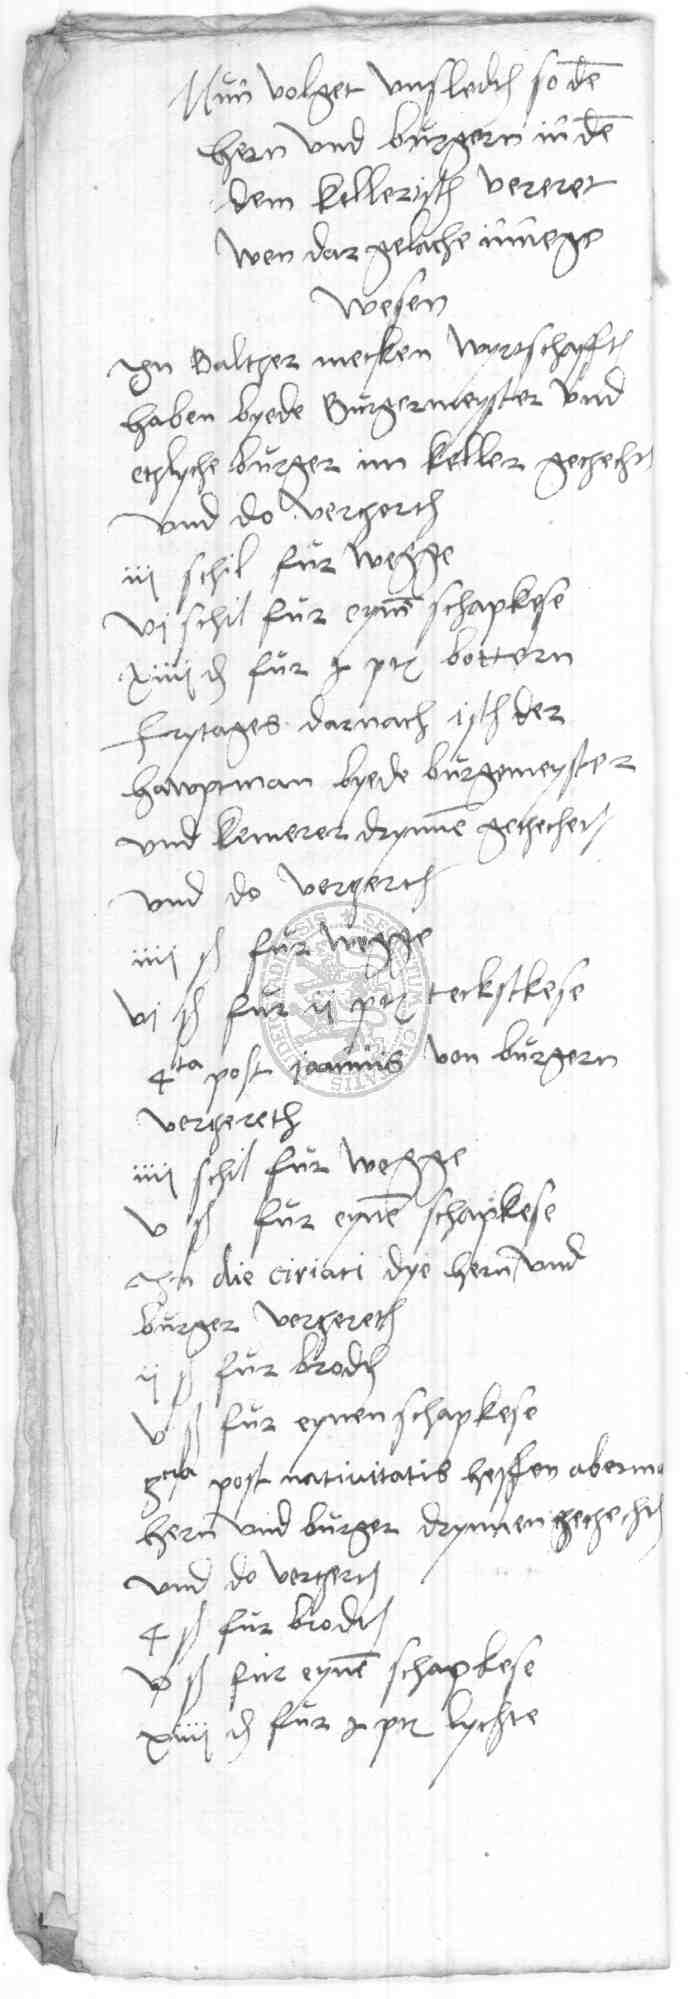 Nun volget unsledth so den
hern und burgern in den
dem kellertisch vereret
wen dar gelache inne ge
wesen
In Baltzer mecken wyrtschafft
haben byede Burgermeyster und
etzlyche burger im keller gezecht
und do verzerth
iii schil fur wegge
vi schil fur eynen schapkese
xiiii d fur j ptz bottern
frytages darnach isth der
hawptman byede burgemeyster
und kemerer drynne gezechet
und do verzerth
iiii ß fur wegge
vi ß fur ii ptz teckstkese
4ta post joannis von burgern
verzereth
iiii schil fur wegge
v ß fur eynen schapkese
In die ciriaci dye hern und
burger verzereth
ii ß fur brodth
v ß fur eynen schapkese
post nativitatis abermo
hern und burger drynnen gezechet
und do verzerth
4 ß fur brodth
v ß fur eynen schapkese
xiiii d fur j ptz lychte